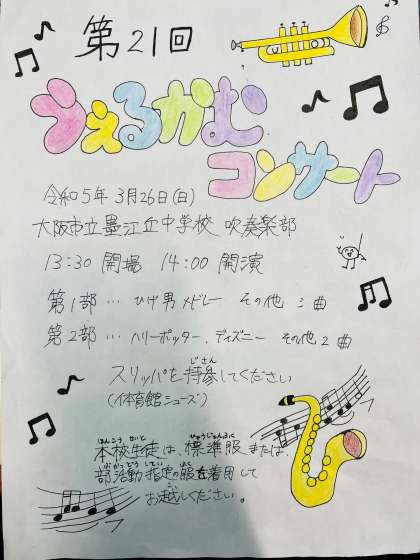 第21回
うぇるかむ
コンサート
令和5年 3月26日(日)
大阪市立墨江丘中学校 吹奏楽部
13:30 開場 14:00 開演
第1部… ひげ男 メドレー その他 3曲
第2部… ハリーポッター、ディズニー その他 2曲
スリッパを持参してください
じさん
(体育館シューズ)
ほんこう せいと ひょうじゅんふく
本校生徒は、標準服または、
ぶかつどう してい ふく
部活動指定の服を着用して
お越しください。